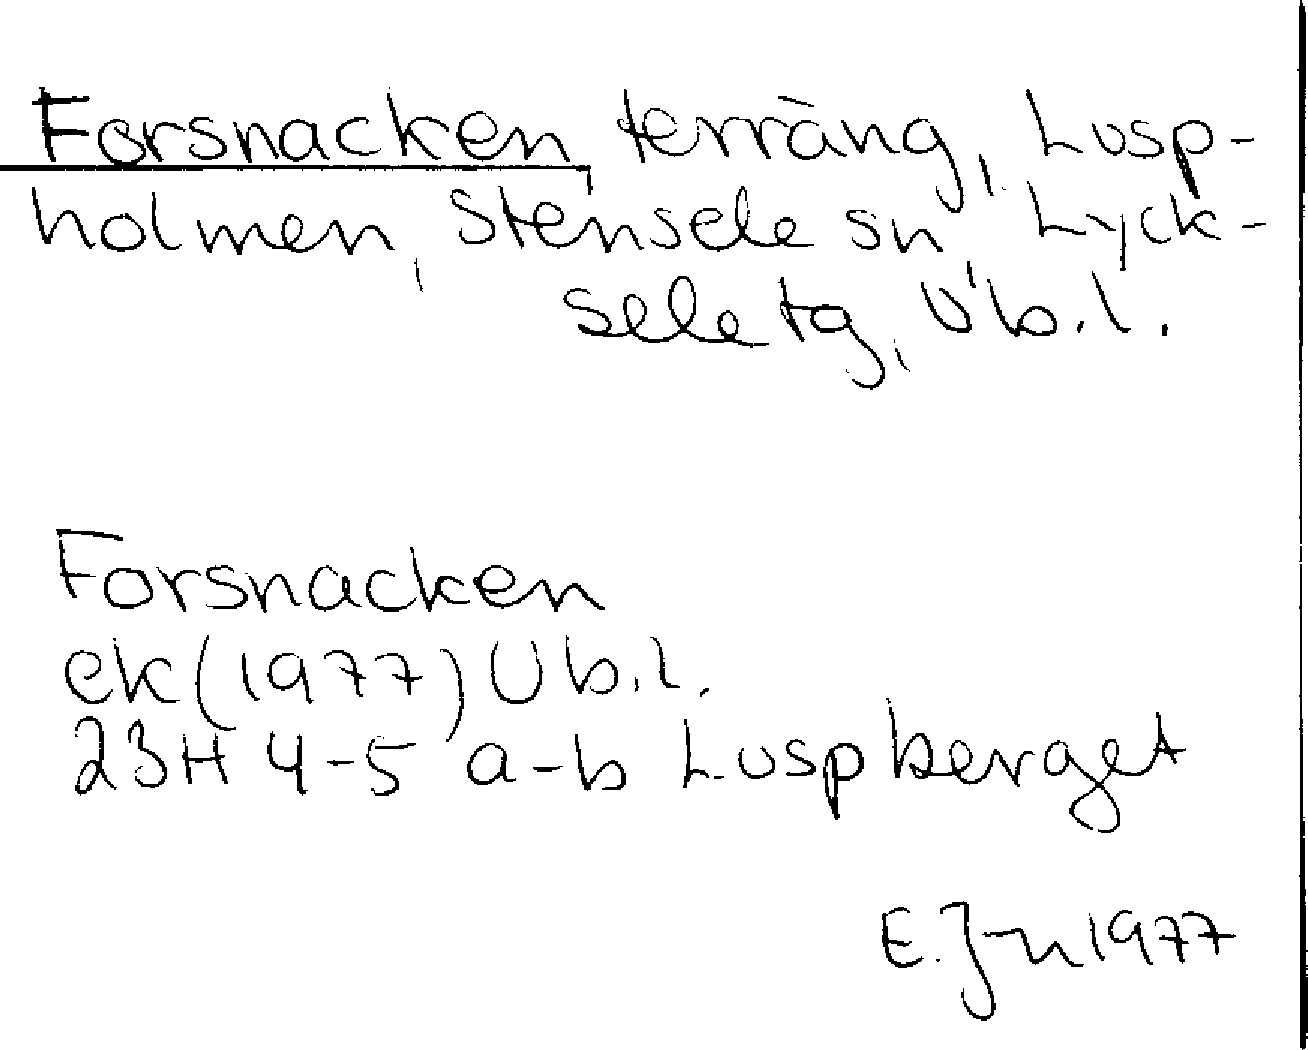 Forsnacken terräng, Lusp-
holmen, Stensele sn, Lyck-
sele tg, Vb.l.
Forsnacken
ek (1977) Vb.l.
23H 4-5 a-b Luspberget
E. J-n 1977